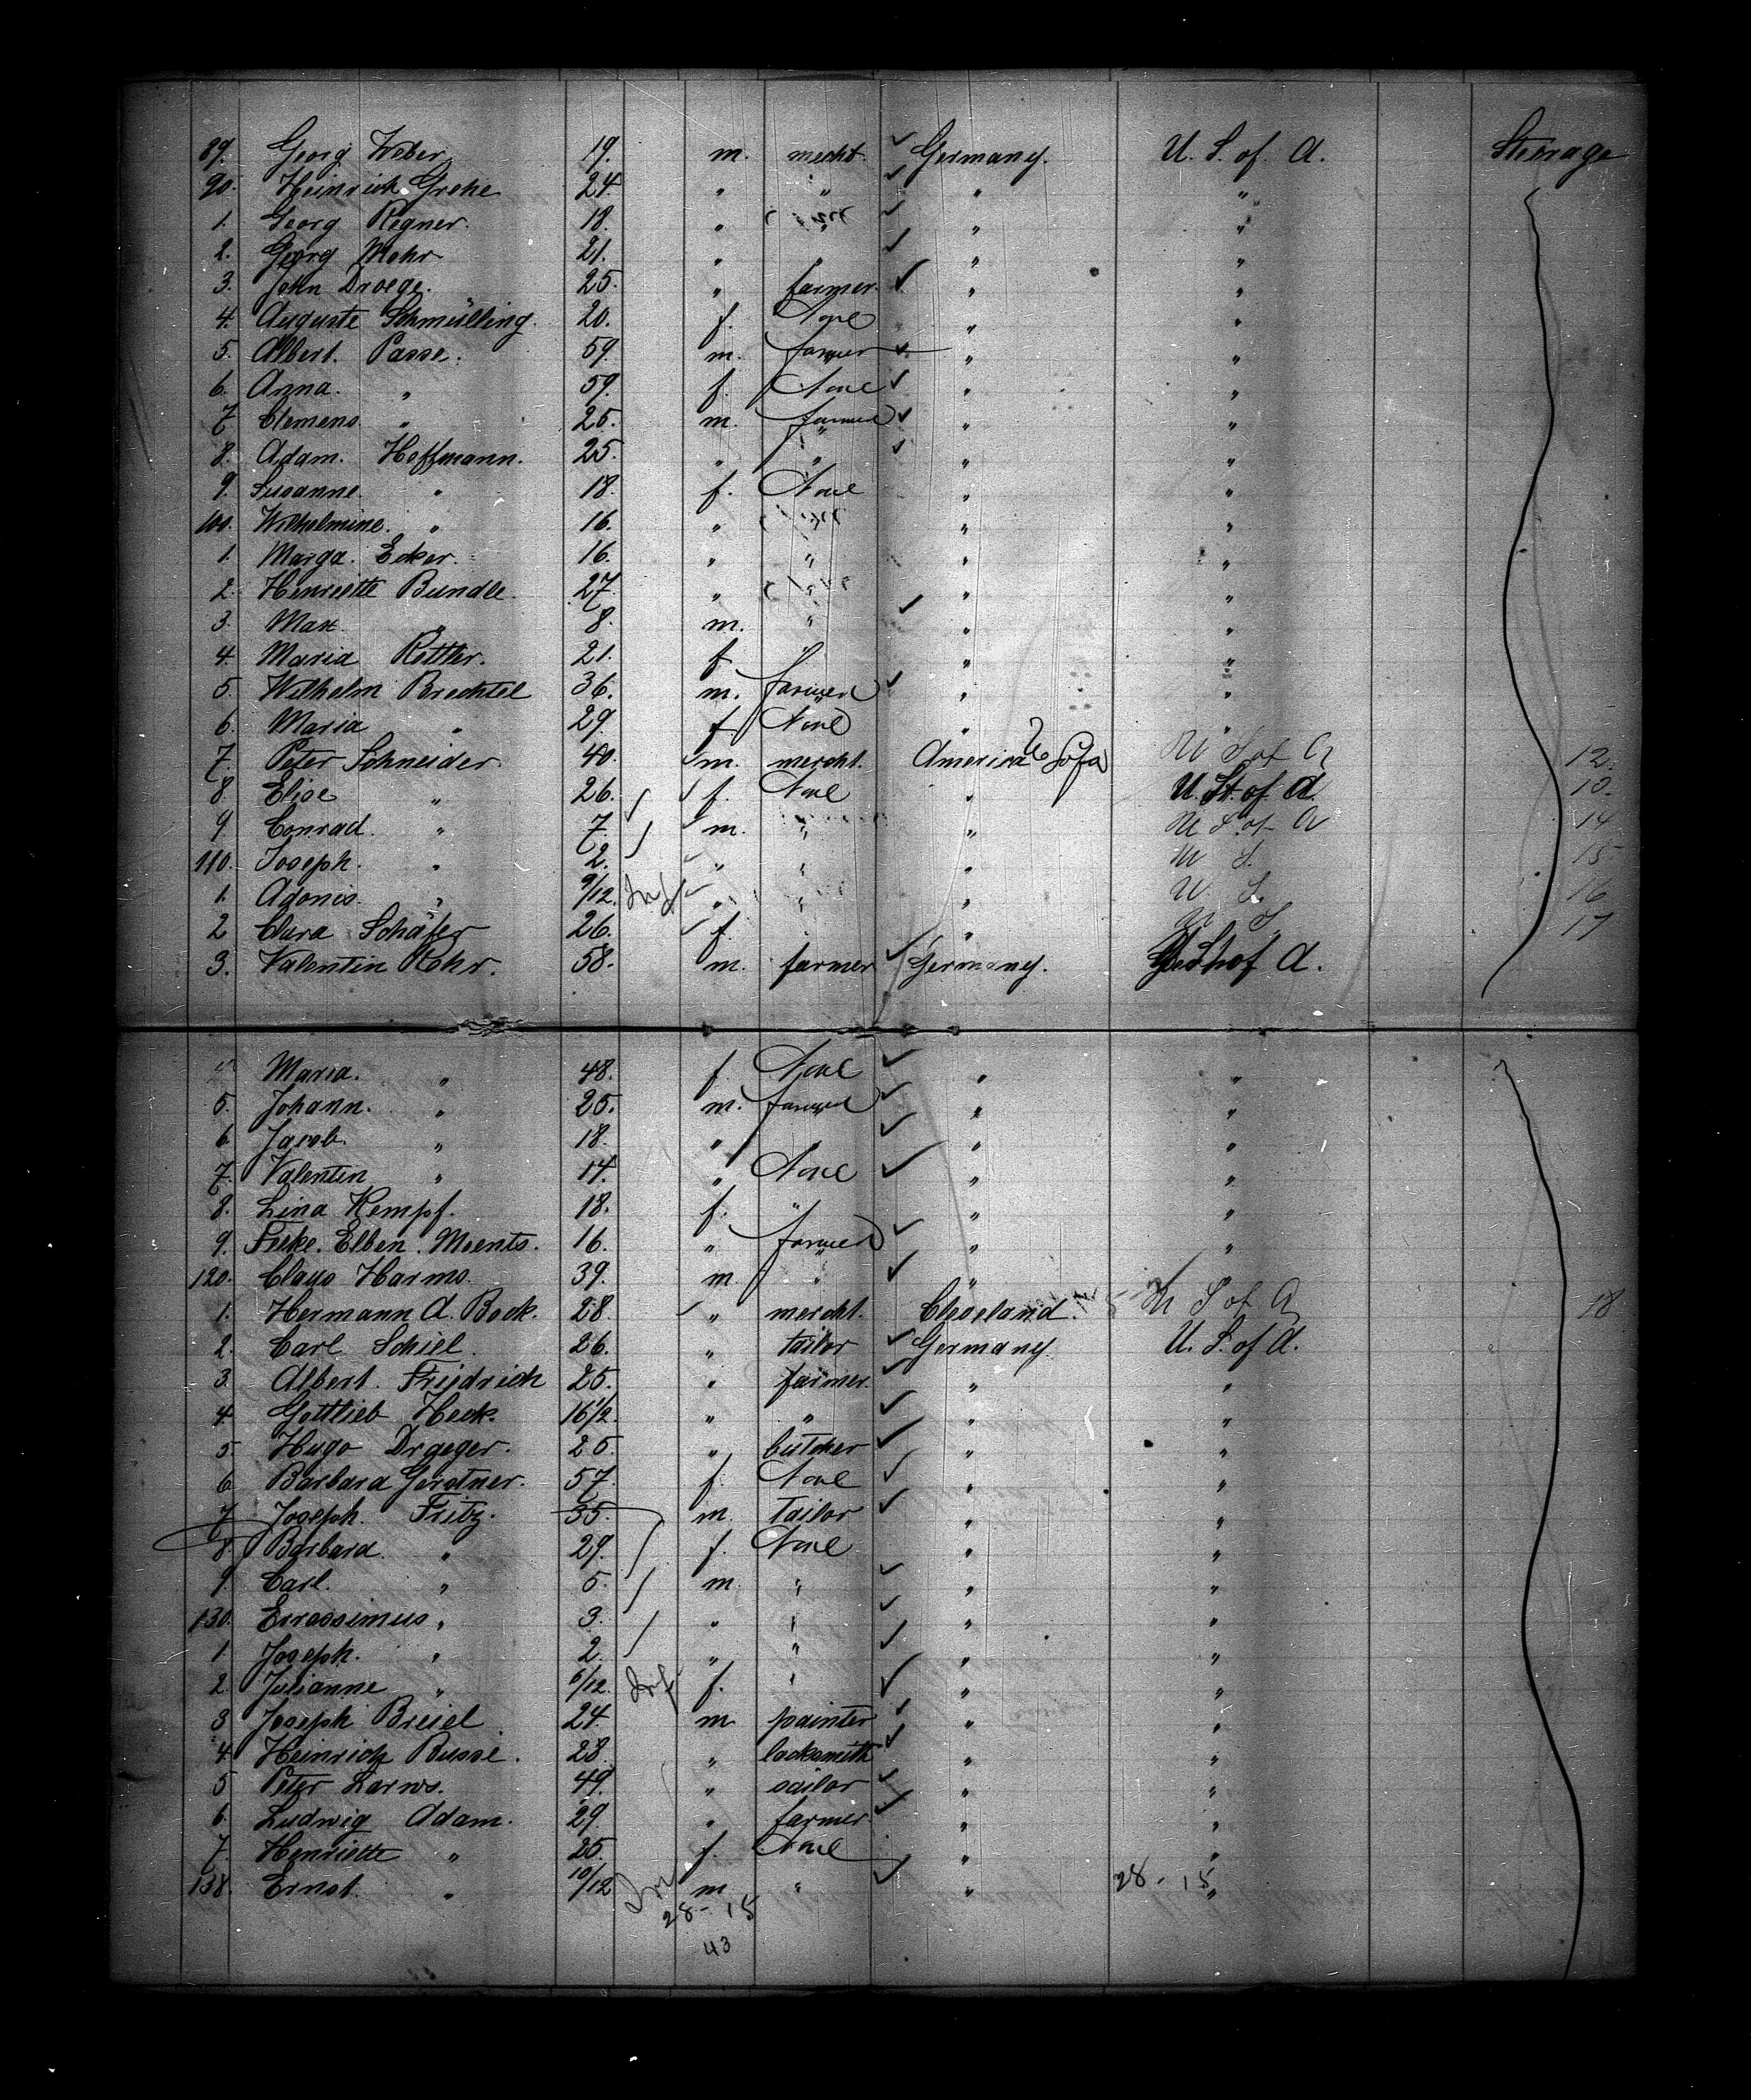 89. Georg Weber 19. m. mercht. Germany. U. S. of. A. Steerage
90. Heinrich Grehe 24. " " " "
1. Georg Regner. 18. " " " "
2. Georg Mohr 21. " " " "
3. John Droege. 25. " farmer. " "
4. Auguste Schmülling. 20. f. None " "
5. Albert. Passe. 59. m. farmer " "
6. Anna. " 59. f. None " "
7. Clemens. " 25. m. farmer " "
8. Adam. Hoffmann. 25. " " " "
9. Susanne. " 18. f. None " "
100. Wilhelmine. " 16. " " "
1. Marga. Ecker. 16. " " " "
2. Henriette Bundle. 27. " " " "
3. Max. " 8. m. " " "
4. Maria Rettler. 21. f. " " "
5. Wilhelm Brechtel 36. m. farmer " "
6. Maria " 29. f. None " "
7. Peter Schneider. 40. m. mercht. America U S of A U S of A 12.
8. Elise " 26. f. None " U. St. of. A. 13.
9. Conrad. " 7. m. " " U S. of A 14
110. Joseph. " 2. " " " U S. 15
1. Adonis. " 9/12. Inf " " " U. S. 16
2 Clara Schäfer 26. f. " " U S. 17
3. Valentin Rohr. 58. m. farmer Germany. U St of A.
Maria. " 48. f. None " "
5. Johann. " 25. m. farmer " "
6. Jacob. " 18. " " "
7. Valentin " 14. " None " "
8. Lina Kempf. 18. f. " " "
9. Feke. Elben. Moents. 16. " farmer " "
120. Claus Harms. 39. m. " " "
1. Hermann A. Bock. 28. " mercht. Cleveland. U S of A 18
2. Carl Schiel. 26. " tailor Germany. U. S. of A.
3. Albert. Friedrich 25. " farmer. " "
4. Gottlieb Heck. 16 1/2. " " " "
5. Hugo Draeger. 25. " butcher " "
6. Barbara Gerstner. 57. f. None " "
7. Joseph. Fritz. 35. m. tailor " "
8. Barbara. " 29. f. None " "
9. Carl. " 5. m. " " "
130. Errassimus " 3. " " " "
1. Joseph. " 2. " " " "
2. Julianne " 6/12. Inf f. " " "
3 Joseph Breiel 24. m. painter " "
4. Heinrich Busse. 28. " locksmith " "
5 Peter Larws. 49. " sailor " "
6. Ludwig Adam. 29. " farmer. " "
7. Henriette " 25. f. None " "
138. Ernst. " 10/12 Inf m. " " 28 - 15 "
28 - 15
43